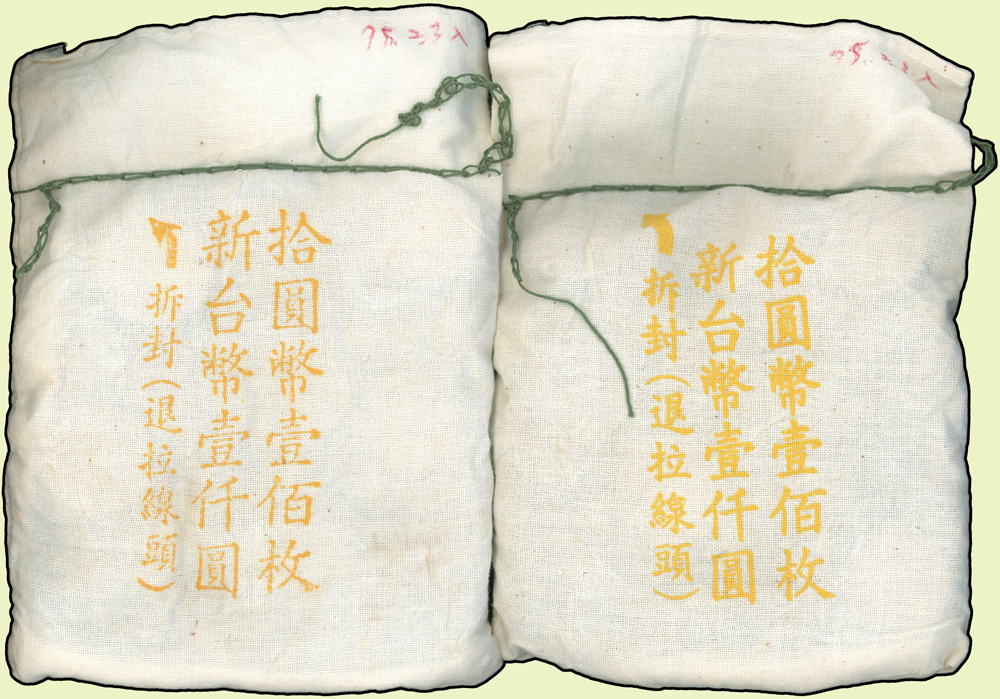 拾圓幣壹佰枚
新台幣壹仟圓
拆封(退拉線頭)
拾圓幣壹佰枚
新台幣壹仟圓
拆封(退拉線頭)